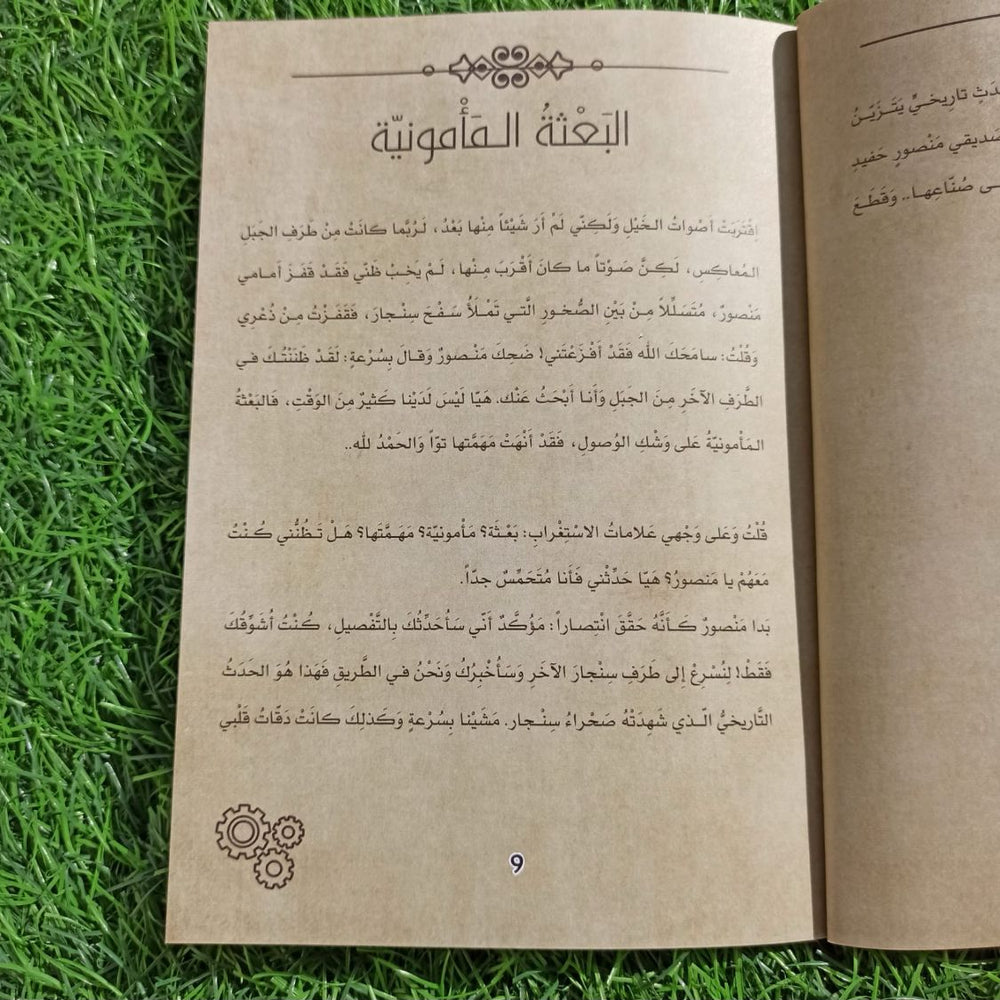 البَعْثةُ المَأْمونيّة
اقْتَرَبَتْ أصْواتُ الخَيْلِ وَلَكِنّي لَمْ أَرَ شَيْئاً مِنْها بَعْدُ، لَرُبَّما كانَتْ مِنْ طَرَفِ الجَبَلِ
المُعاكِسِ، لَكِنَّ صَوْتاً ما كانَ أَقْرَبَ مِنْها، لَمْ يَخِبْ ظَنّي فَقَدْ قَفَزَ أمامي
مَنْصورٌ، مُتَسَلِّلاً مِنْ بَيْنِ الصُّخورِ الَّتي تَمْلَأُ سَفْحَ سِنْجارَ، فَقَفَزْتُ مِنْ ذُعْري
وَقُلْتُ: سامَحَكَ اللهُ فَقَدْ أفْزَعْتَني! ضَحِكَ مَنْصورٌ وَقالَ بِسُرْعةٍ: لَقَدْ ظَنَنْتُكَ في
الطَّرَفِ الآخَرِ مِنَ الجَبَلِ وَأَنا أَبْحَثُ عَنْك. هَيّا لَيْسَ لَدَيْنا كَثيرٌ مِنَ الوَقْتِ، فَالبَعْثةُ
المَأْمونيّةُ عَلى وَشْكِ الوُصولِ، فَقَدْ أَنْهَتْ مَهَمَّتها توّاً وَالحَمْدُ لله..
قُلْتُ وَعَلى وَجْهي عَلاماتُ الاسْتِغْرابِ: بَعْثَة؟ مَأْمونيّة؟ مَهَمَّتَها؟ هَلْ تَظُنُّني كُنْتُ
مَعَهُمْ يا مَنصورُ؟ هَيّا حَدِّثْني فَأَنا مُتَحَمِّسٌ جدّاً.
بَدا مَنْصورٌ كَأَنَّهُ حَقَّقَ انْتِصاراً: مَؤكَّدٌ أنّي سَأُحَدِّثُكَ بِالتَّفْصيل، كُنْتُ أُشَوِّقُكَ
فَقَطْ! لِنُسْرِعْ إلى طَرَفِ سِنْجارَ الآخَرِ وَسَأُخْبِرُكُ وَنَحْنُ في الطَّريقِ فَهَذا هُوَ الحَدَثُ
التَّاريخيُّ الّذي شَهِدَتْهُ صَحْراءُ سِنْجار. مَشَيْنا بِسُرْعةٍ وَكَذلِكَ كانَتْ دَقّاتُ قَلْبي
9
تاريخيٍّ يَتَزَيّنُ
صَديقي مَنْصورٍ حَفيدِ
صُنّاعِها.. وَقَطَعَ